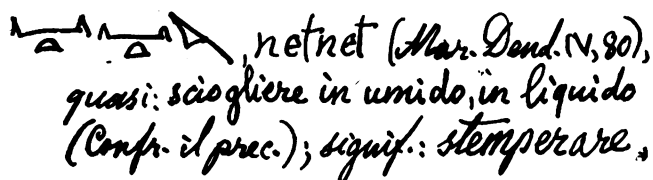 , netnet (Mar. Dend. IV, 80),
quasi: sciogliere in umido, in liquido
(Confr. il prec.); signif.: stemperare.